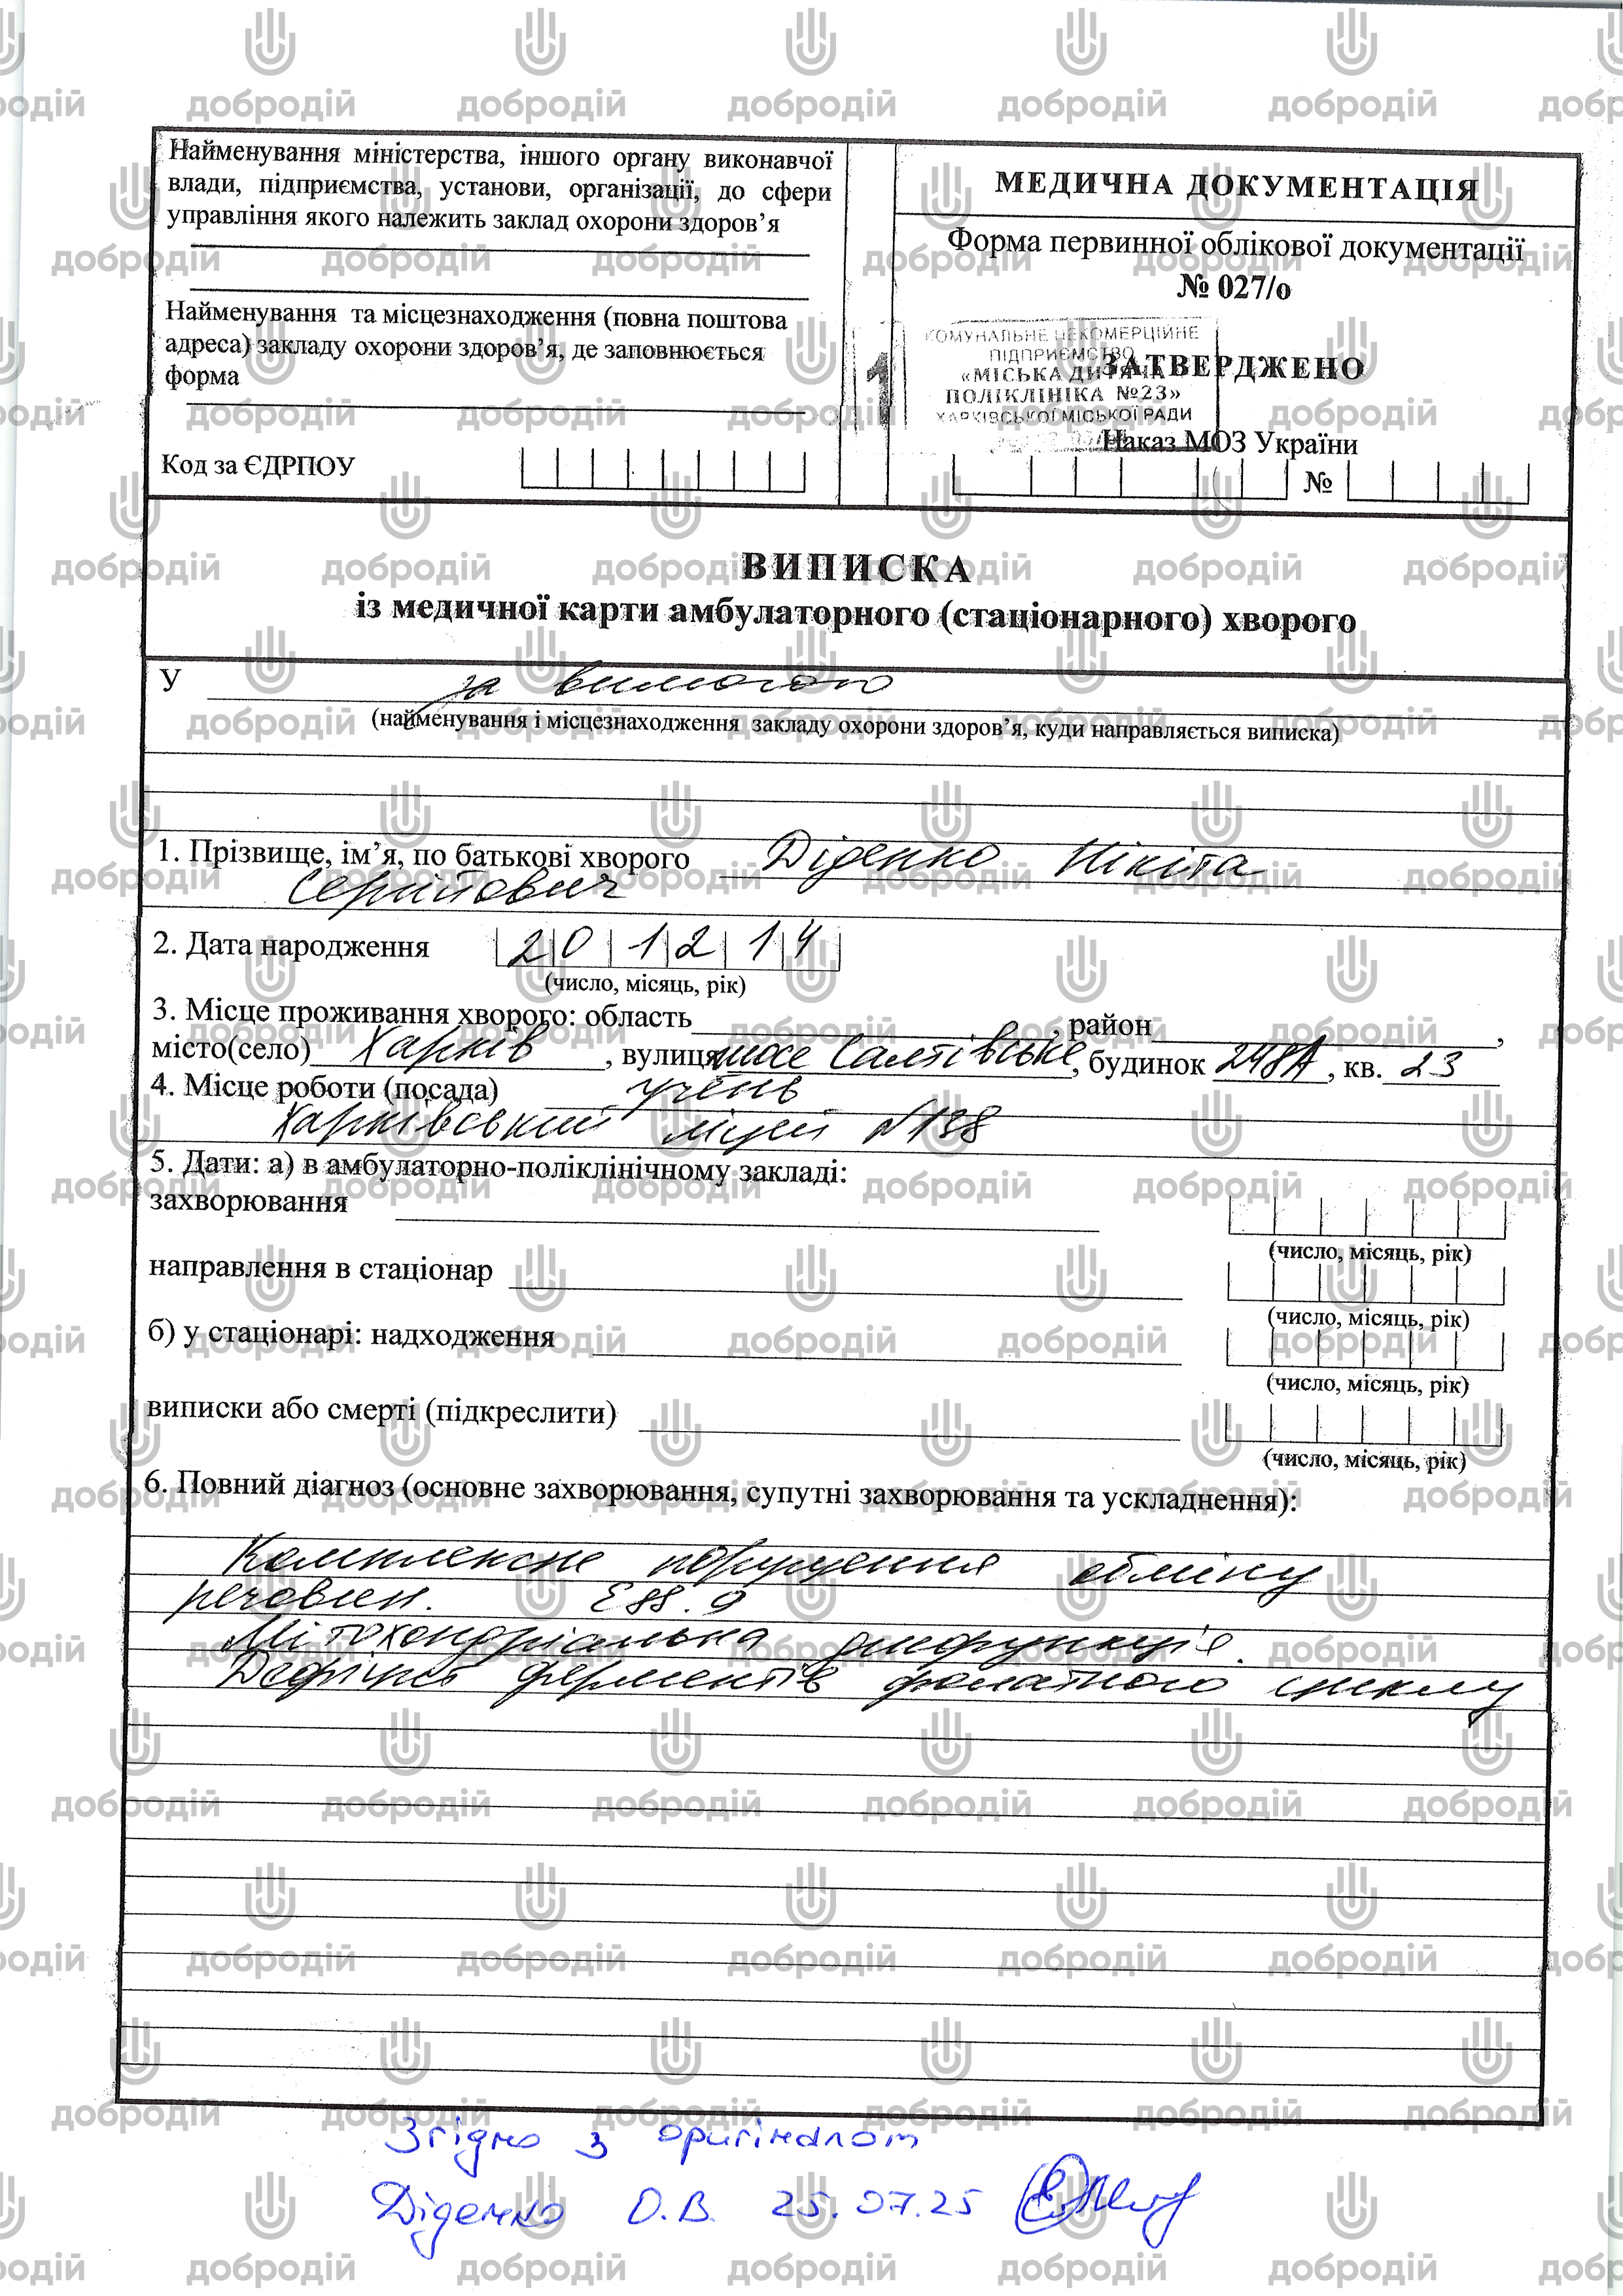 Найменування міністерства, іншого органу виконавчої
влади, підприємства, установи, організації, до сфери
управління якого належить заклад охорони здоров’я
Найменування та місцезнаходження (повна поштова
адреса) закладу охорони здоров’я, де заповнюється
форма
Код за ЄДРПОУ
МЕДИЧНА ДОКУМЕНТАЦІЯ
Форма первинної облікової документації
№ 027/о
КОМУНАЛЬНЕ НЕКОМЕРЦІЙНЕ
ПІДПРИЄМСТВО
«МІСЬКА ДИТЯЧА
ПОЛІКЛІНІКА №23»
ХАРКІВСЬКОЇ МІСЬКОЇ РАДИ
1
ЗАТВЕРДЖЕНО
Наказ МОЗ України
№
ВИПИСКА
із медичної карти амбулаторного (стаціонарного) хворого
У за вимогою
(найменування і місцезнаходження закладу охорони здоров’я, куди направляється виписка)
1. Прізвище, ім’я, по батькові хворого Діденко Нікіта
Сергійович
2. Дата народження 20 12 14
(число, місяць, рік)
3. Місце проживання хворого: область , район ,
місто(село) Харків , вулиця шосе Салтівське, будинок 248А, кв. 23
4. Місце роботи (посада) учень
Харківський ліцей №138
5. Дати: а) в амбулаторно-поліклінічному закладі:
захворювання
(число, місяць, рік)
направлення в стаціонар
(число, місяць, рік)
б) у стаціонарі: надходження
(число, місяць, рік)
виписки або смерті (підкреслити)
(число, місяць, рік)
6. Повний діагноз (основне захворювання, супутні захворювання та ускладнення):
Комплексне порушення обміну
речовин. E88.9
Мітохондріальна дисфункція.
Дефіцит ферментів фолатного циклу
Згідно з оригіналом
Діденко О.В. 25.07.25
добродій